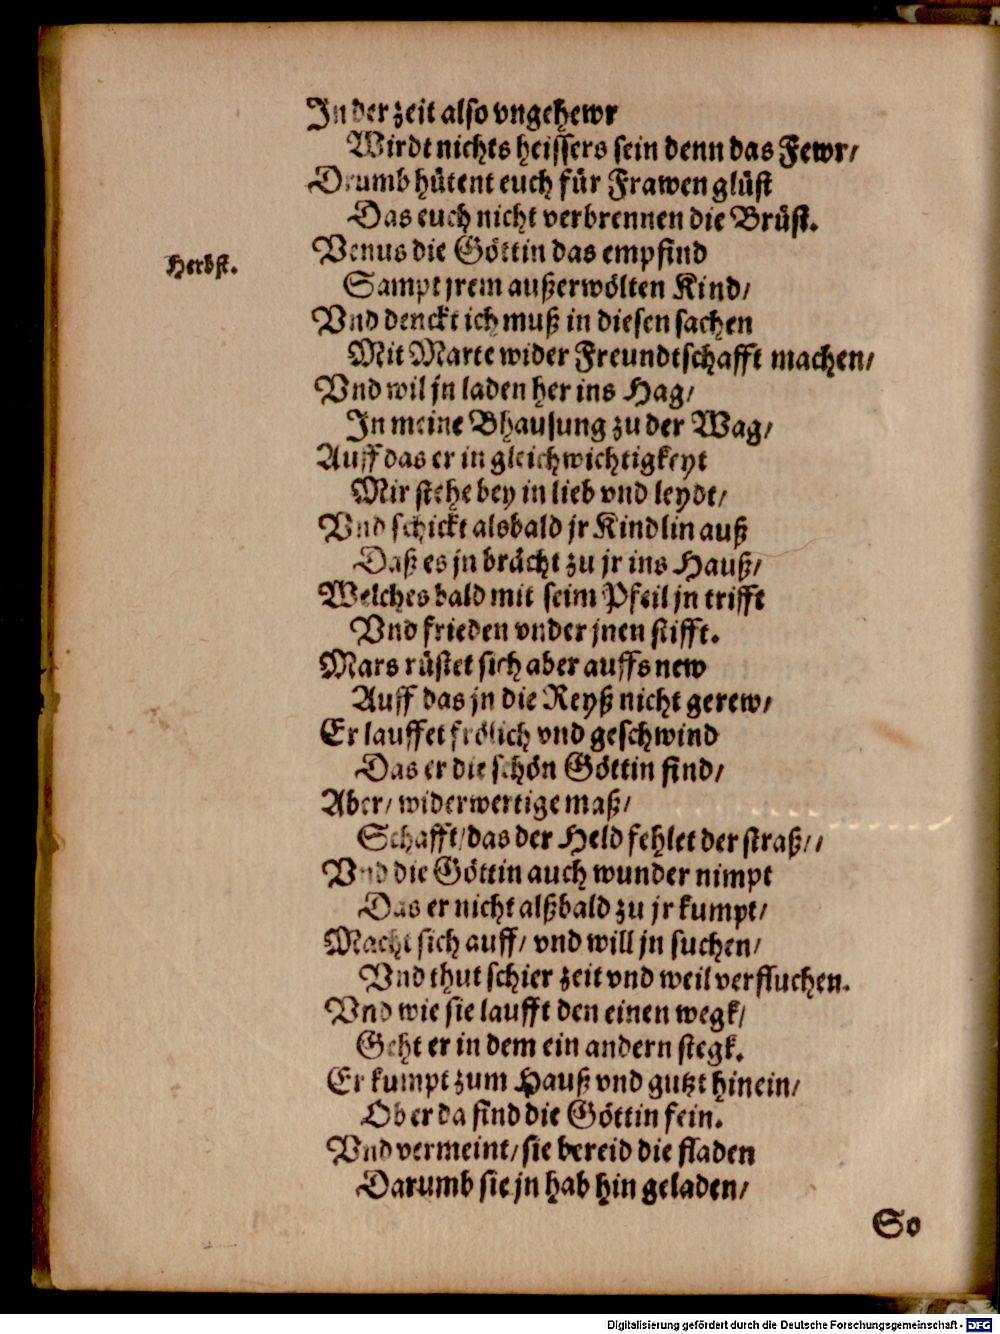 In der zeit also vngehewr
Wirdt nichts heissers sein denn das Fewr/
Drumb hütent euch für Frawen glüst
Das euch nicht verbrennen die Brüst.
Herbst.
Venus die Göttin das empfind
Sampt jrem außerwölten Kind/
Vnd denckt ich muß in diesen sachen
Mit Marte wider Freundtschafft machen/
Vnd wil jn laden her ins Hag/
In meine Bhausung zu der Wag/
Auff das er in gleichwichtigkeyt
Mir stehe bey in lieb vnd leydt/
Vnd schickt alsbald jr Kindlin auß
Daß es jn brächt zu jr ins Hauß/
Welches bald mit seim Pfeil jn trifft
Vnd frieden vnder jnen stifft.
Mars rüstet sich aber auffs new
Auff das jn die Reyß nicht gerew/
Er lauffet frölich vnd geschwind
Das er die schön Göttin find/
Aber/ widerwertige maß/
Schafft/ das der Held fehlet der straß/
Vnd die Göttin auch wunder nimpt
Das er nicht alßbald zu jr kumpt/
Macht sich auff/ vnd will jn suchen/
Vnd thut schier zeit vnd weil verfluchen.
Vnd wie sie laufft den einen wegk/
Geht er in dem ein andern stegk.
Er kumpt zum Hauß vnd gutzt hinein/
Ob er da find die Göttin fein.
Vnd vermeint/ sie bereid die fladen
Darumb sie jn hab hin geladen/
So
Digitalisierung gefördert durch die Deutsche Forschungsgemeinschaft - DFG